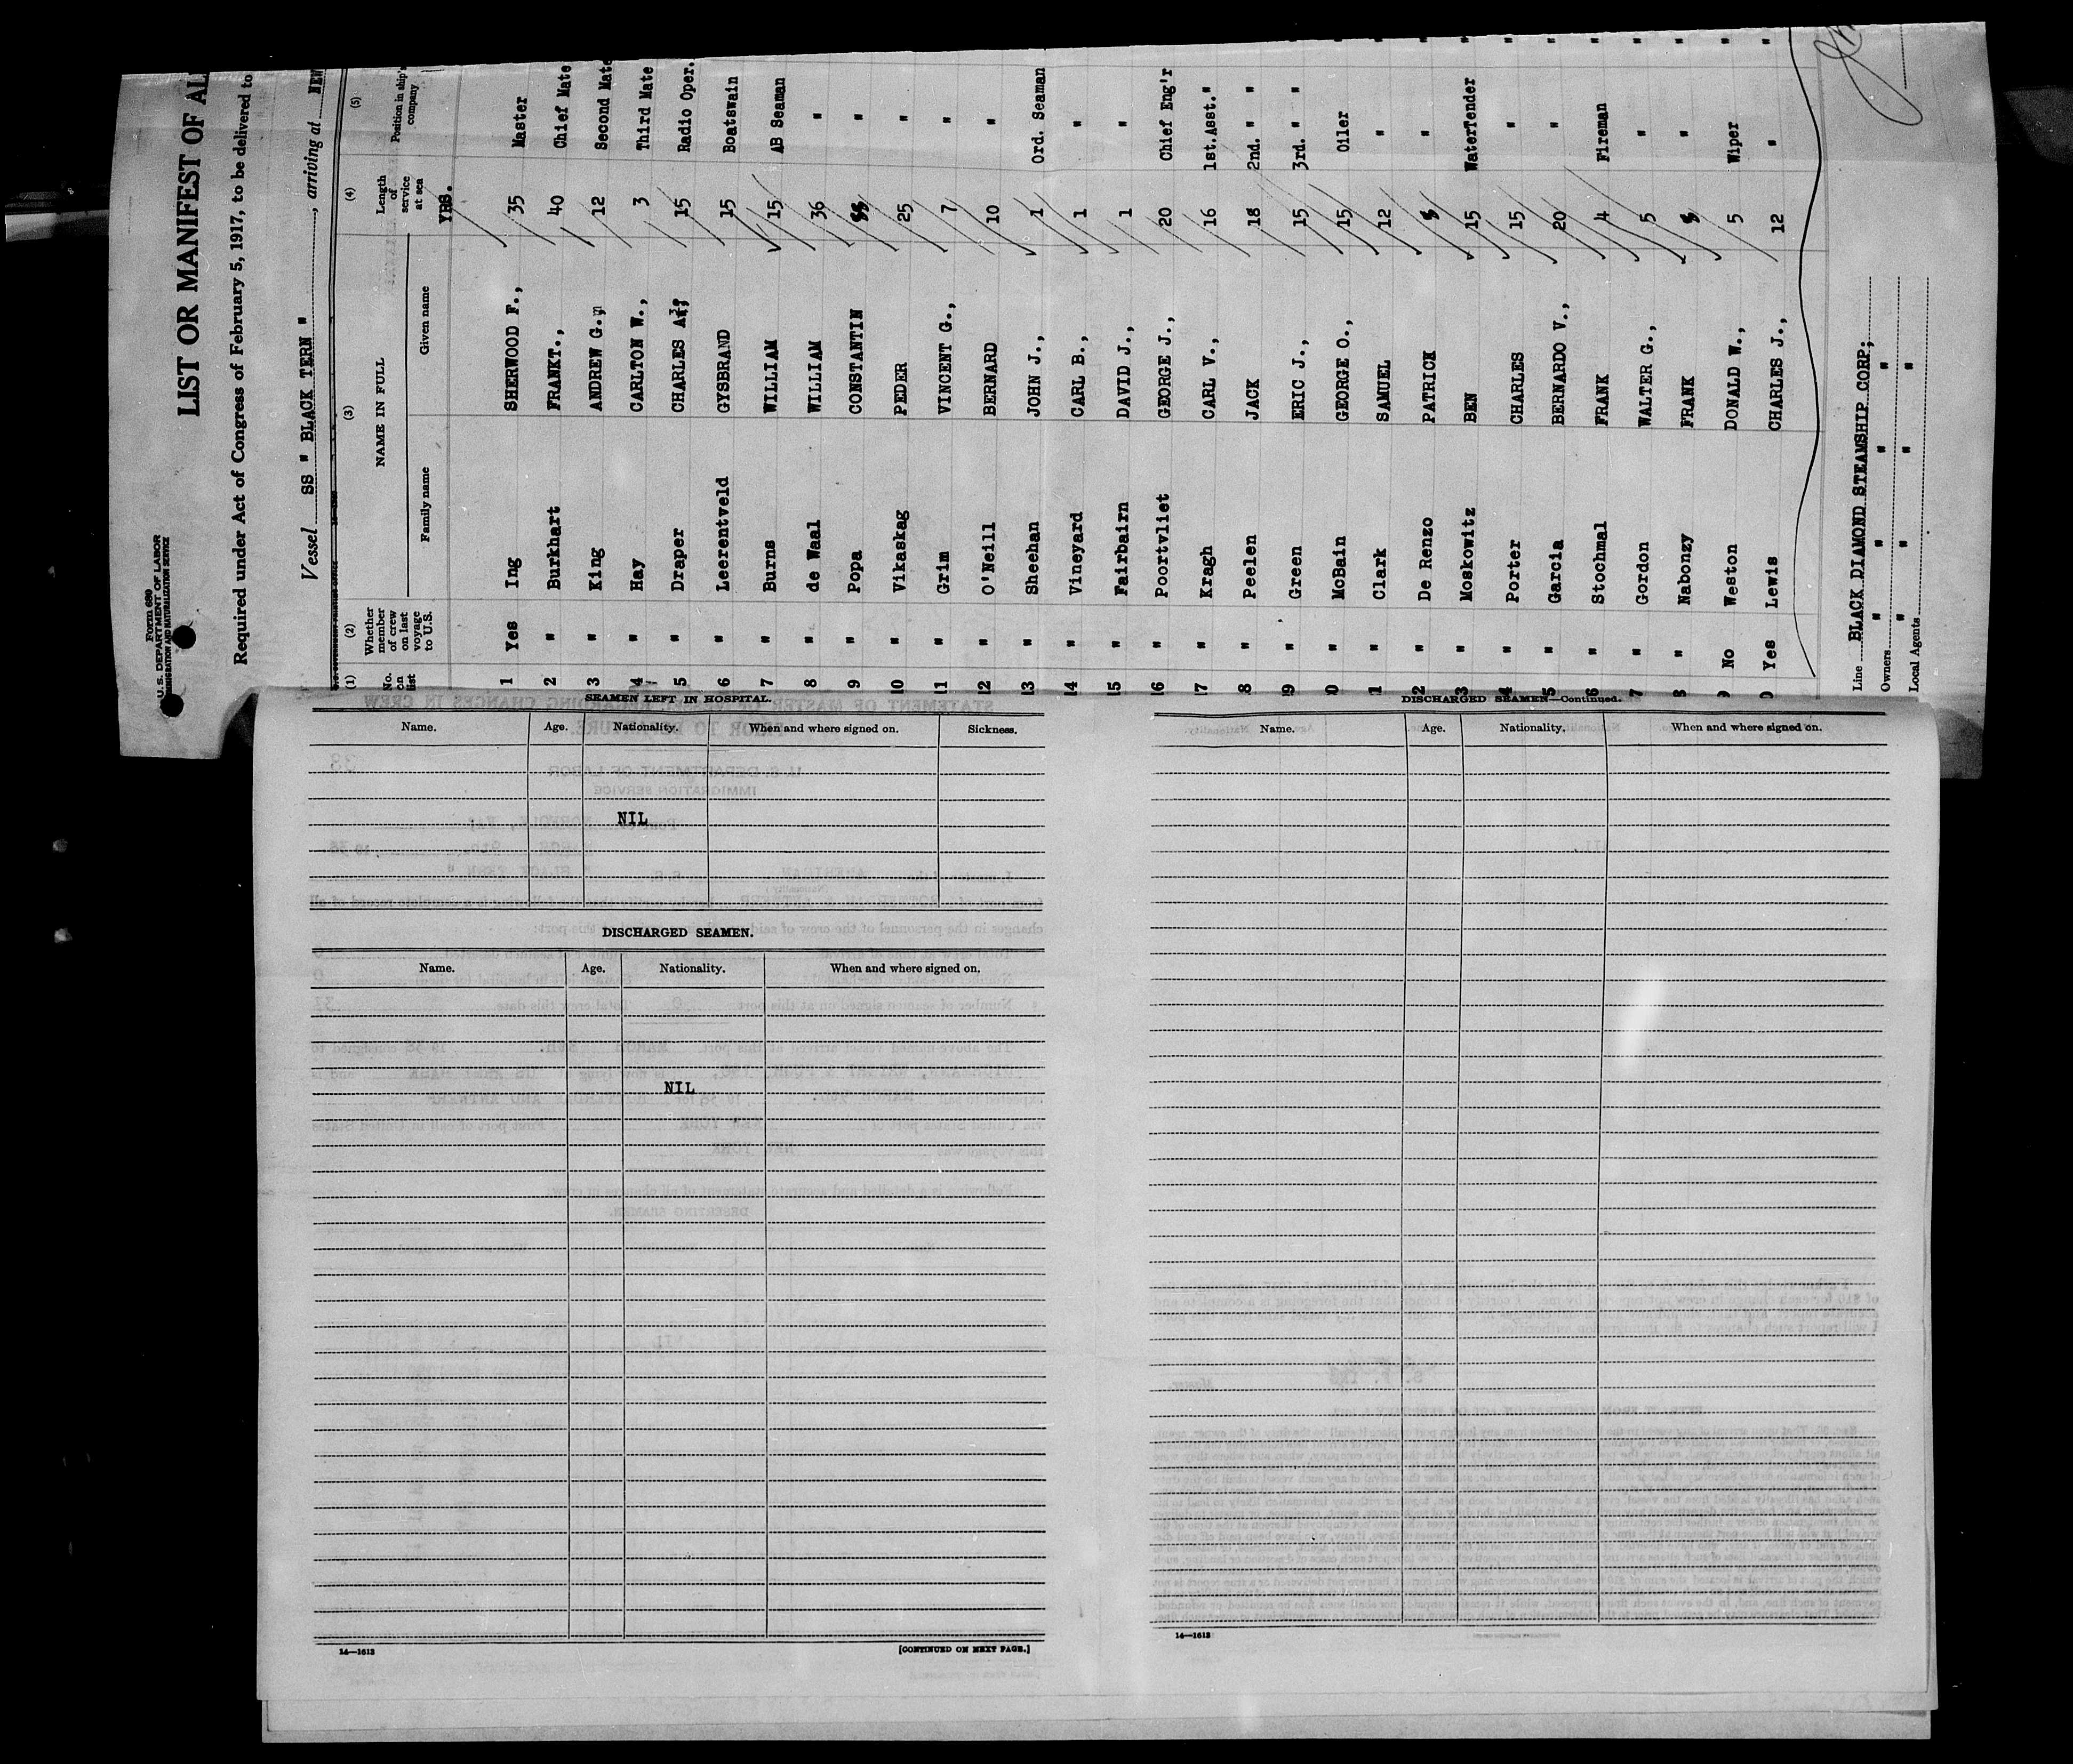 Form 680
U. S. DEPARTMENT OF LABOR
IMMIGRATION AND NATURALIZATION SERVICE
LIST OR MANIFEST OF AL
Required under Act of Congress of February 5, 1917, to be delivered to
Vessel SS " BLACK TERN ", arriving at NEW
(1) (2) (3) (4) (5)
No. on list Whether member of crew on last voyage to U.S. NAME IN FULL Family name Given name Length of service at sea Position in ship's company
YRS.
1 Yes Ing SHERWOOD F., 35 Master
2 " Burkhart FRANKT., 40 Chief Mate
3 " King ANDREW G., 12 Second Mate
4 " Hay CARLTON W., 3 Third Mate
5 " Draper CHARLES 15 Radio Oper.
6 " Leerentveld GYSBRAND 15 Boatswain
7 " Burns WILLIAM 15 AB Seaman
8 " de Waal WILLIAM 36 "
9 " Popa CONSTANTIN "
10 " Vikaskag PEDER 25 "
11 " Grim VINCENT G., 7 "
12 " O'Neill BERNARD 10 "
13 " Sheehan JOHN J., 1 Ord. Seaman
14 " Vineyard CARL B., 1 "
15 " Fairbairn DAVID J., 1 "
16 " Poortvliet GEORGE J., 20 Chief Eng'r
17 " Kragh CARL V., 16 1st.Asst."
18 " Peelen JACK 18 2nd. " "
9 " Green ERIC J., 15 3rd. " "
0 " McBain GEORGE O., 15 Oiler
1 " Clark SAMUEL 12 "
2 " De Renzo PATRICK "
3 " Moskowitz BEN 15 WaterTender
4 " Porter CHARLES 15 "
5 " Garcia BERNARDO V., 20 "
6 " Stochmal FRANK 4 Fireman
7 " Gordon WALTER G., 5 "
8 " Nabonzy FRANK "
9 No Weston DONALD W., 5 Wiper
0 Yes Lewis CHARLES J., 12 "
Line BLACK DIAMOND STEAMSHIP CORP;
Owners " " " "
Local Agents " " "
SEAMEN LEFT IN HOSPITAL.
Name. Age. Nationality. When and where signed on. Sickness.
NIL
DISCHARGED SEAMEN.
Name. Age. Nationality. When and where signed on.
NIL
14—1613
[CONTINUED ON NEXT PAGE.]
DISCHARGED SEAMEN—Continued.
Name. Age. Nationality. When and where signed on.
14—1613